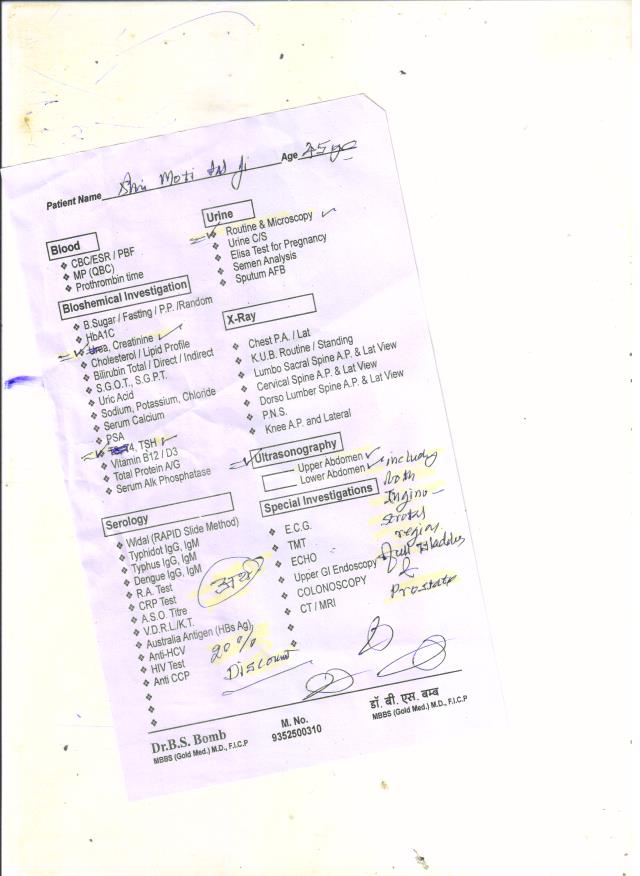 Patient Name Shri Moti Lal Ji Age 45 yr
Blood
❖ CBC/ESR / PBF
❖ MP (QBC)
❖ Prothrombin time
Bioshemical Investigation
❖ B.Sugar / Fasting / P.P. /Random
❖ HbA1C
❖ Urea, Creatinine ✓
❖ Cholesterol / Lipid Profile
❖ Bilirubin Total / Direct / Indirect
❖ S.G.O.T., S.G.P.T.
❖ Uric Acid
❖ Sodium, Potassium, Chloride
❖ Serum Calcium
❖ PSA
T4, TSH ✓
❖ Vitamin B12 / D3
❖ Total Protein A/G
❖ Serum Alk Phosphatase
Serology
❖ Widal (RAPID Slide Method)
❖ Typhidot IgG, IgM
❖ Typhus IgG, IgM
❖ Dengue IgG, IgM
❖ R.A. Test
❖ CRP Test
❖ A.S.O. Titre
❖ V.D.R.L/K.T.
❖ Australia Antigen (HBs Ag)
❖ Anti-HCV
❖ HIV Test
❖ Anti CCP
20%
Discount
Urine
❖ Routine & Microscopy ✓
❖ Urine C/S
❖ Elisa Test for Pregnancy
❖ Semen Analysis
❖ Sputum AFB
X-Ray
❖ Chest P.A. / Lat
❖ K.U.B. Routine / Standing
❖ Lumbo Sacral Spine A.P. & Lat View
❖ Cervical Spine A.P. & Lat View
❖ Dorso Lumber Spine A.P. & Lat View
❖ P.N.S.
❖ Knee A.P. and Lateral
Ultrasonography
Upper Abdomen ✓
Lower Abdomen ✓ including
both
Ingino-
scrotal
region
Full Bladder
&
Prostate
Special Investigations
❖ E.C.G.
❖ TMT
❖ ECHO
❖ Upper GI Endoscopy
❖ COLONOSCOPY
❖ CT / MRI
Dr.B.S. Bomb
MBBS (Gold Med.) M.D., F.I.C.P
M. No.
9352500310
डॉ. बी. एस. बम्ब
MBBS (Gold Med.) M.D., F.I.C.P